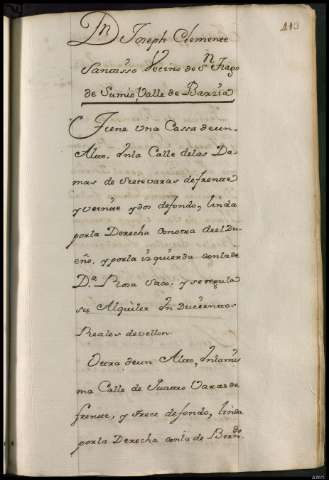 113
Dn Joseph Clemente
Vecino de Sn Tiago
de Sumio, Valle de Barzia
Tiene una Cassa de un
Alto, Inla Calle de las Da-
mas de siete varas de frente
y veinte y dos de fondo, linda
por la Derecha con otra de el Du-
eño, y por la izquierda con la de
Da Rosa Saco, y se regula
su Alquiler In Ducientos
Reales de vellon
Otra de un Alto, Inla mis
ma Calle de Quatro Varas de
frente, y trece de fondo, linda
por la Derecha con la de Bernde